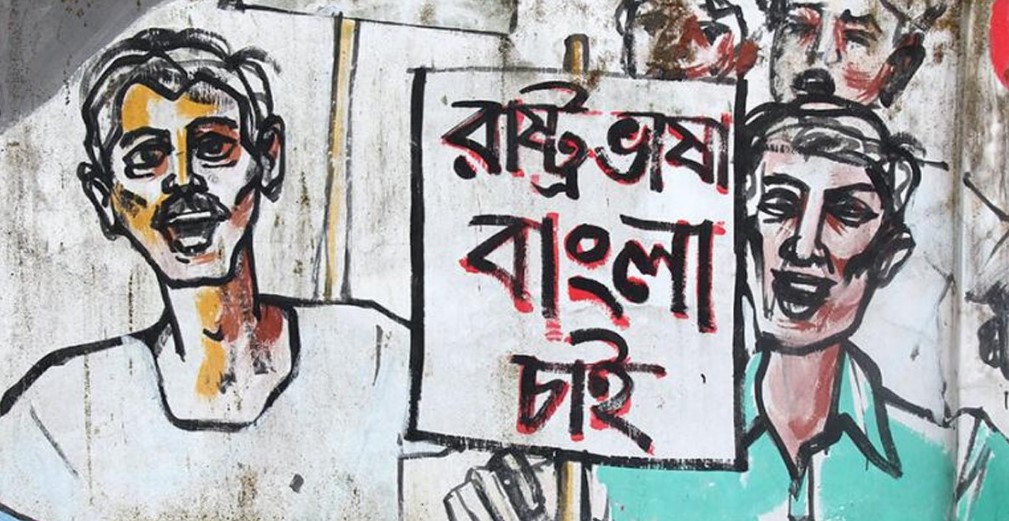 রাষ্ট্র ভাষা
বাংলা
চাই